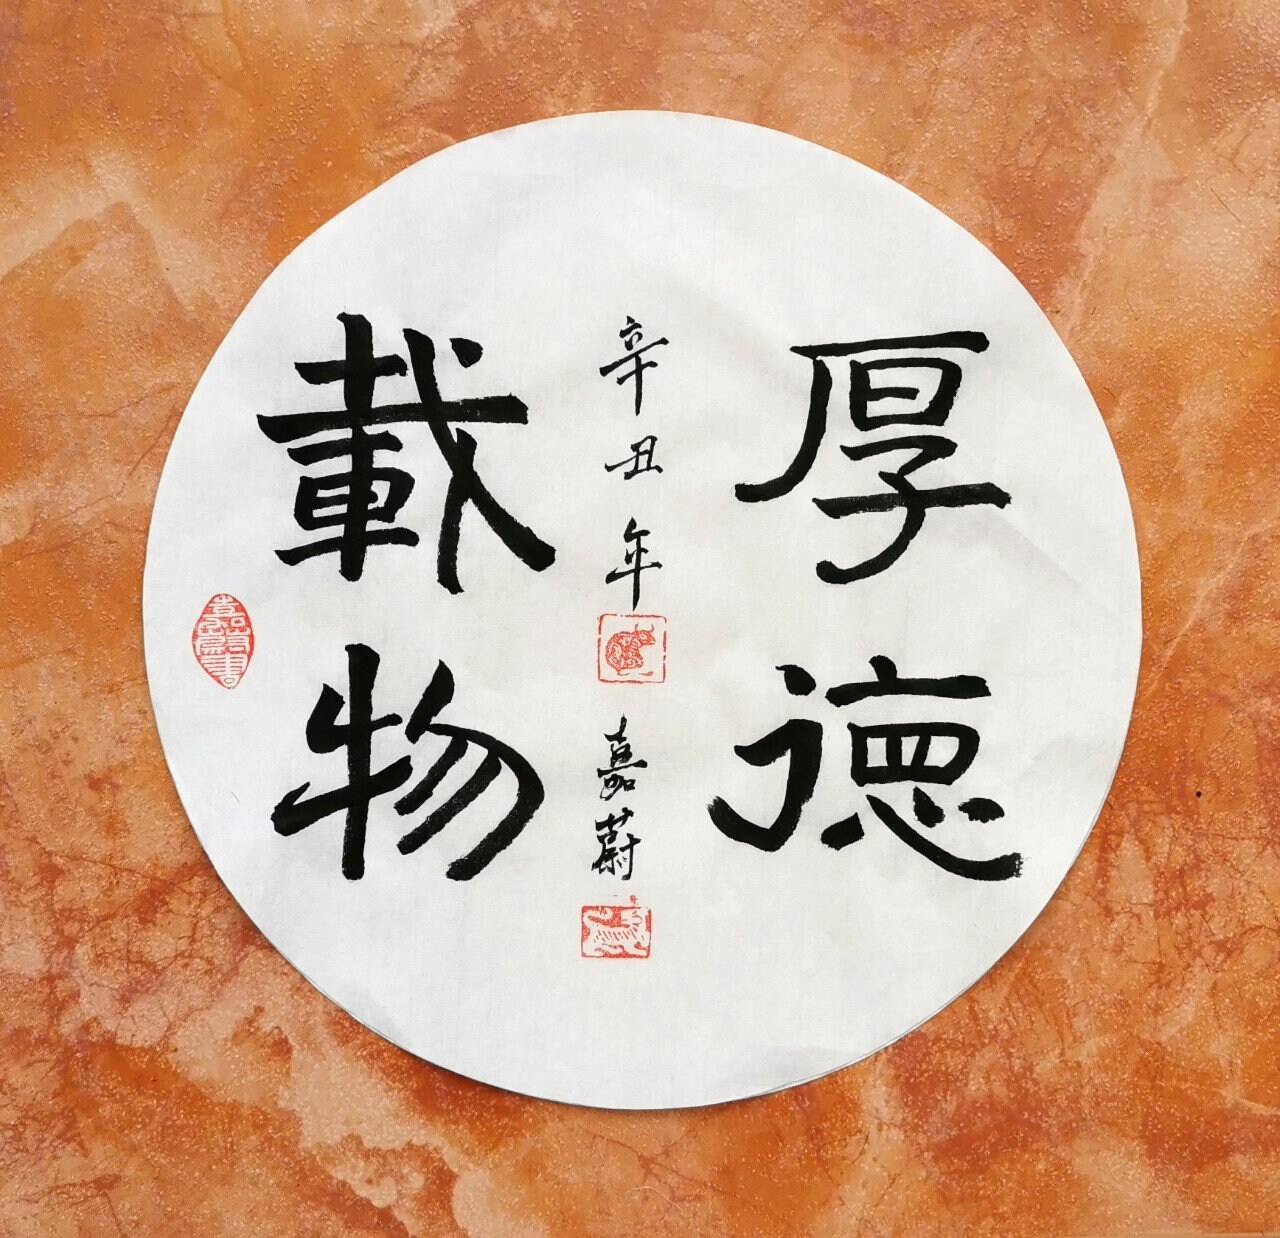 厚德
載物
辛丑年
嘉蔚
嘉蔚書